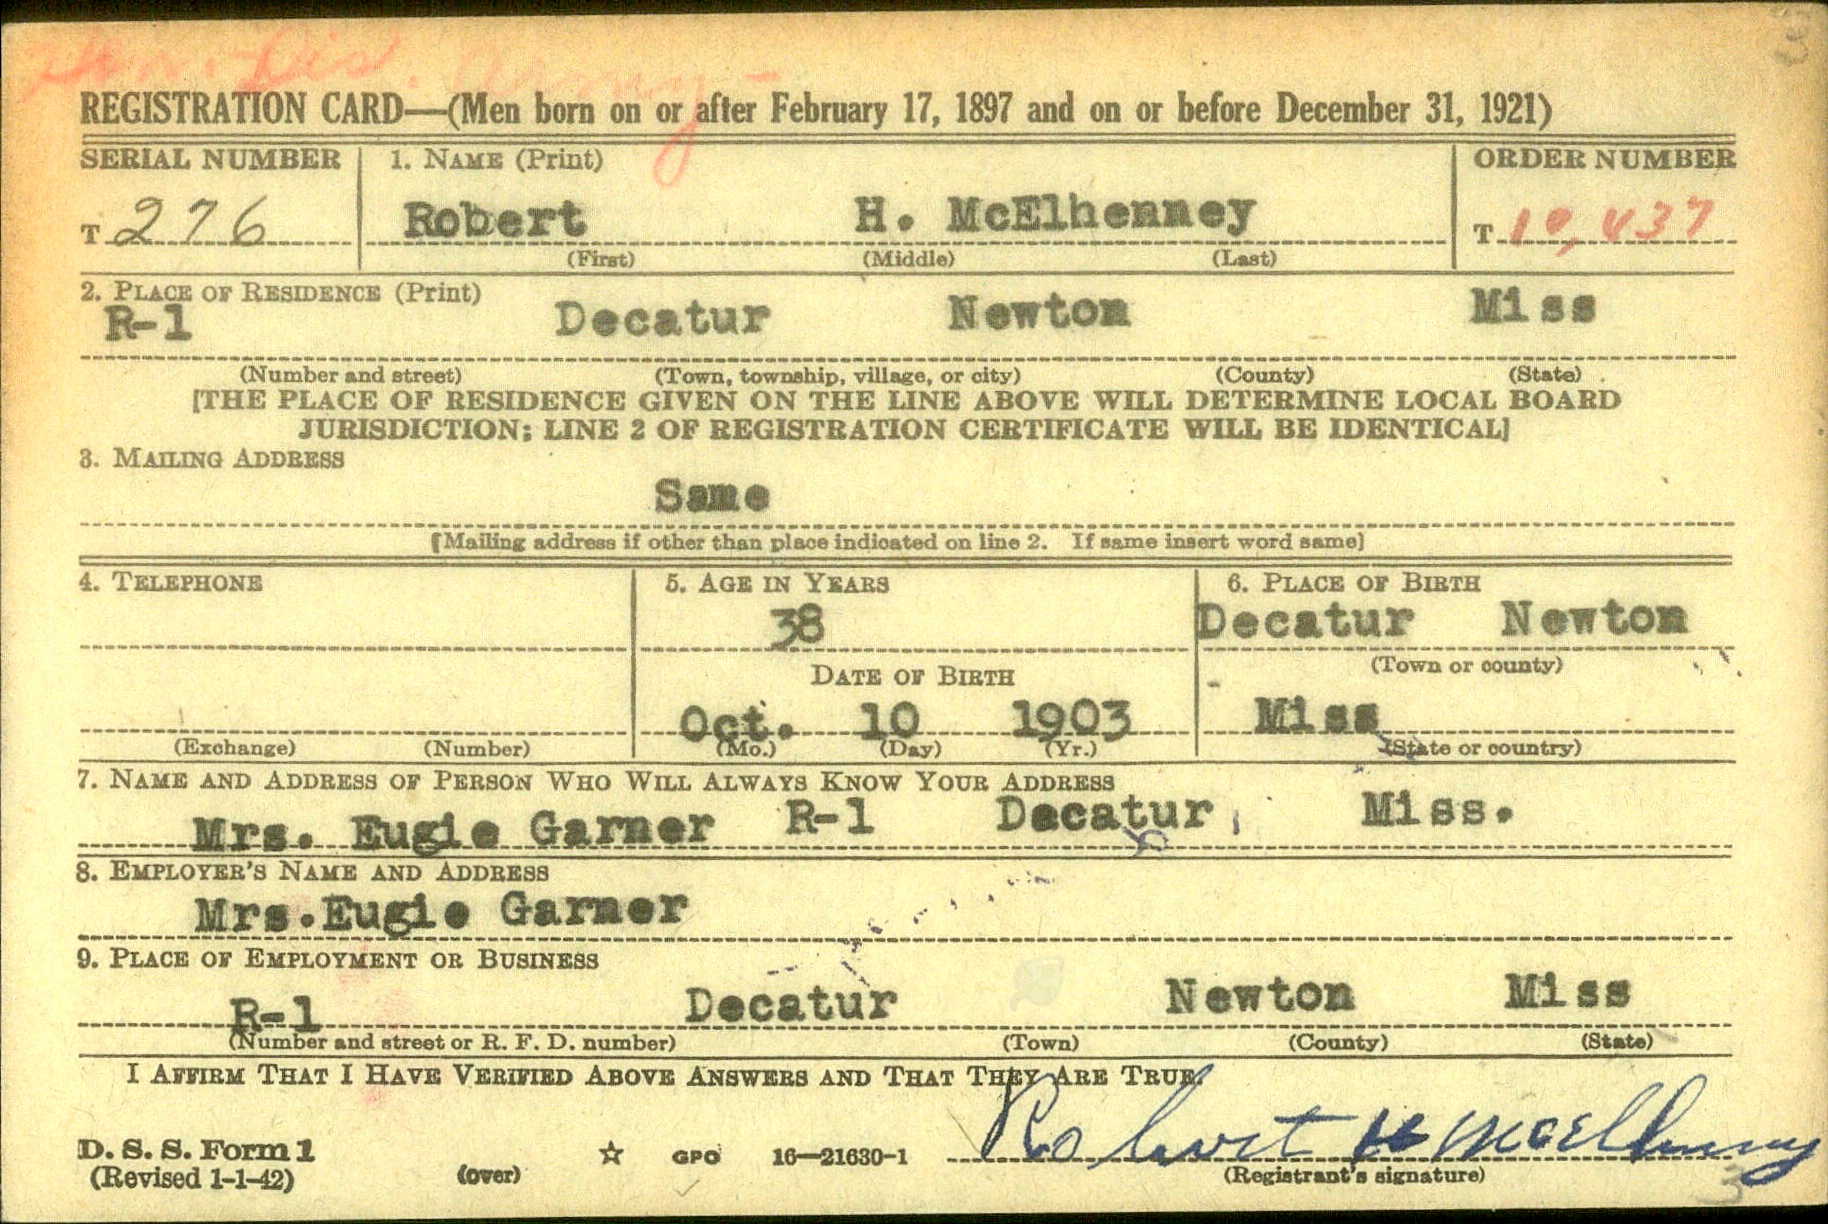 Hon. Dis. Army -
3
REGISTRATION CARD—(Men born on or after February 17, 1897 and on or before December 31, 1921)
SERIAL NUMBER 1. NAME (Print) ORDER NUMBER
T 276 Robert H. McElhenney T 10,437
(First) (Middle) (Last)
2. PLACE OF RESIDENCE (Print)
R-1 Decatur Newton Miss
(Number and street) (Town, township, village, or city) (County) (State)
[THE PLACE OF RESIDENCE GIVEN ON THE LINE ABOVE WILL DETERMINE LOCAL BOARD
JURISDICTION; LINE 2 OF REGISTRATION CERTIFICATE WILL BE IDENTICAL]
3. MAILING ADDRESS
Same
[Mailing address if other than place indicated on line 2. If same insert word same]
4. TELEPHONE 5. AGE IN YEARS 6. PLACE OF BIRTH
38 Decatur Newton
DATE OF BIRTH (Town or county)
Oct. 10 1903 Miss
(Exchange) (Number) (Mo.) (Day) (Yr.) (State or country)
7. NAME AND ADDRESS OF PERSON WHO WILL ALWAYS KNOW YOUR ADDRESS
Mrs. Eugie Garner R-1 Decatur, Miss.
8. EMPLOYER'S NAME AND ADDRESS
Mrs.Eugie Garner
9. PLACE OF EMPLOYMENT OR BUSINESS
R-1 Decatur Newton Miss
(Number and street or R. F. D. number) (Town) (County) (State)
I AFFIRM THAT I HAVE VERIFIED ABOVE ANSWERS AND THAT THEY ARE TRUE.
Robert H McElhenney
D. S. S. Form 1
(Revised 1-1-42) (over) ☆ GPO 16—21630-1 (Registrant's signature)
3